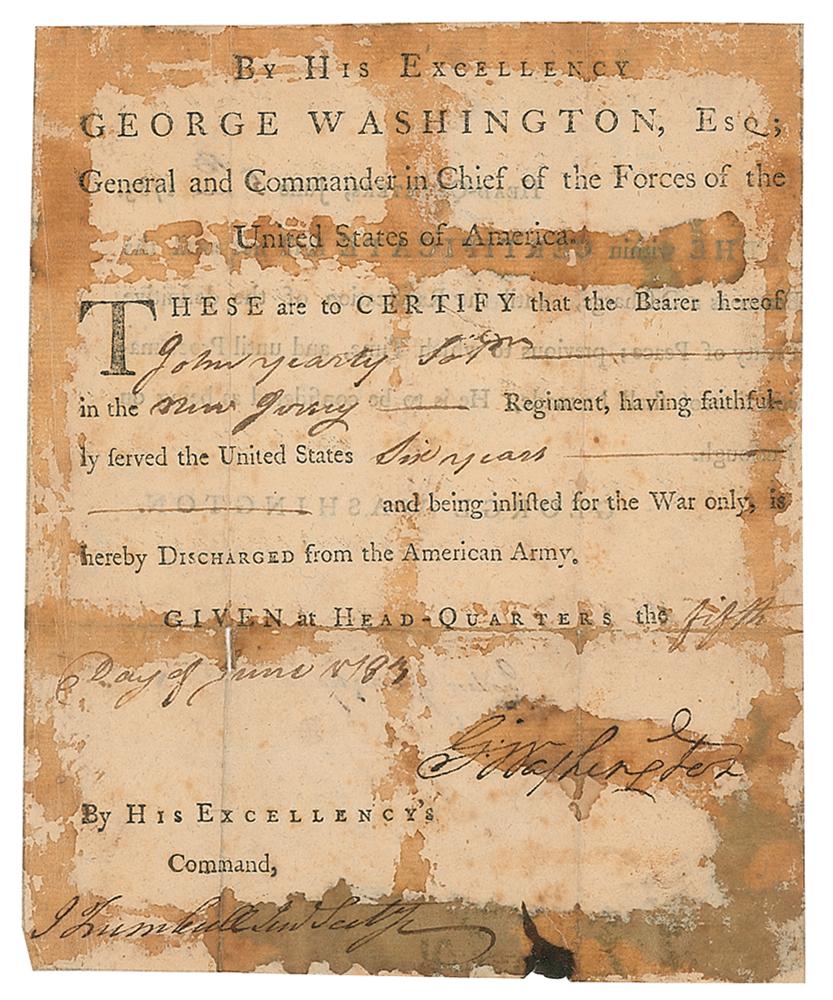 By His Excellency
GEORGE WASHINGTON, Esq;
General and Commander in Chief of the Forces of the
United States of America.
THESE are to CERTIFY that the Bearer hereof
John yearty
in the new Jersey Regiment, having faithful-
ly ſerved the United States Six years
and being inliſted for the War only, is
hereby DISCHARGED from the American Army.
GIVEN at HEAD-QUARTERS the fifth
Day of June 1783
G:Washington
By His Excellency's
Command,
J Trumbull Jun Secty